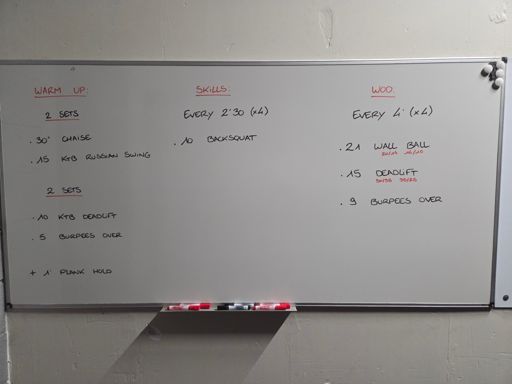 WARM UP:
2 SETS
. 30" CHAISE
. 15 KTB RUSSIAN SWING
2 SETS
. 10 KTB DEADLIFT
. 5 BURPEES OVER
+ 1' PLANK HOLD
SKILLS:
EVERY 2'30 (x4)
. 10 BACKSQUAT
WOD:
EVERY 4' (x4)
. 21 WALL BALL
. 15 DEADLIFT
. 9 BURPEES OVER